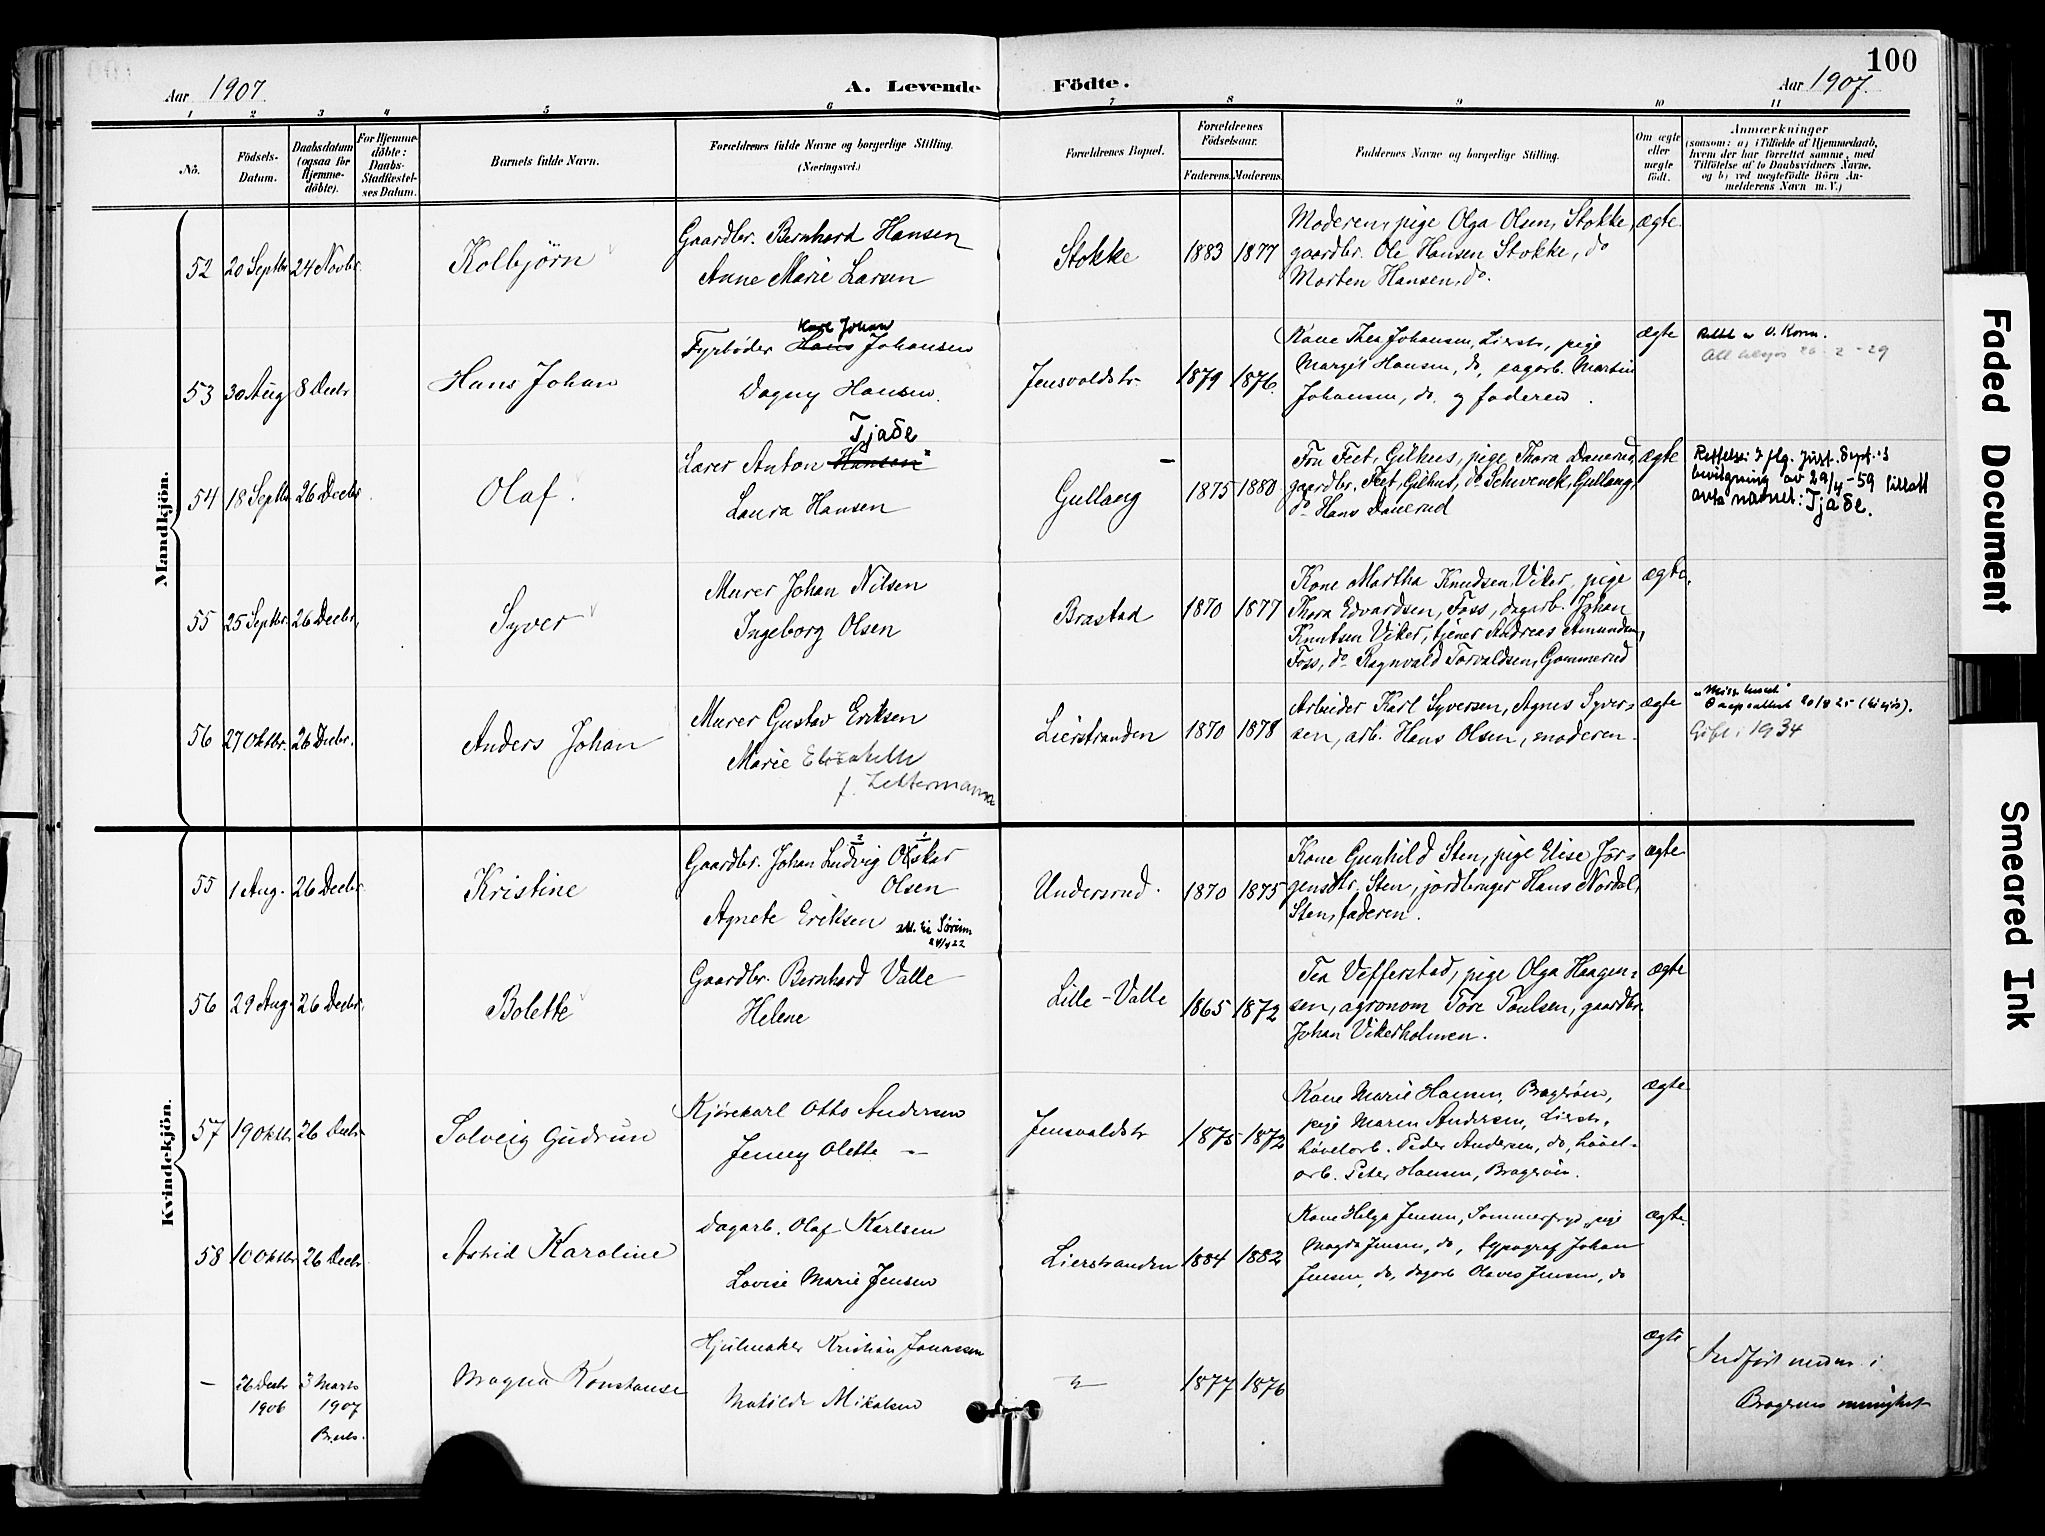 100
Aar 1907. A. Levende Födte. Aar 1907.
1 2 3 4 5 6 7 8 9 10 11
No.
Födsels-
Datum.
Daabsdatum
(ogsaa for
Hjemme-
döbte).
For Hjemme-
döbte:
Daabs-
Stadfæstel-
ses Datum.
Barnets fulde Navn.
Forældrenes fulde Navne og borgerlige Stilling.
(Næringsvei.)
Forældrenes Bopæl.
Forældrenes
Födselsaar.
Faderens. Moderens.
Faddernes Navne og borgerlige Stilling.
Om ægte
eller
uægte
födt.
Anmærkninger
(saasom: a) i Tilfælde af Hjemmedaab,
hvem der har forrettet samme, med
Tilföielse af to Daabsvidners Navne.
og b) ved uægtefödte Börn An-
melderens Navn m. V.)
Mandkjön.
52 20 Septbr 24 Novbr. Kolbjörn
Gaardbr. Bernhard Hansen
Anne Marie Larsen
Stokke 1883 1877
Moderen, pige Olga Olsen, Stokke,
gaardbr. Ole Hansen Stokke, do
Morten Hansen, do.
ægte.
53 30 Aug 8 Decbr Hans Johan
Karl Johan
Fyrböder Hans Johansen
Dagny Hansen.
Jensvoldstr. 1879 1876.
Kone Thea Johansen, Lierstr., pige
Margit Hansen, do, sagarb. Martin
Johansen, do. og faderen.
ægte
54 18 Septbr 26 Decbr Olaf.
Tjade
Lærer Anton Hansen
Laura Hansen
Gullaug 1875 1880
Fru Feet, Gilhus, pige Thora Danerud,
gaardbr. Feet, Gilhus, do Schwenck, Gullaug,
do Hans Danerud
ægte
bevilgning av 29/4-59 tillatt
navnet: Tjade.
55 25 Septbr. 26 Decbr. Syver
Murer Johan Nilsen
Ingeborg Olsen
Brastad 1870 1877
Kone Martha Knudsen Viker, pige
Thora Edvardsen, Foss, dagarb. Johan
Knutsen Viker, tjener Andreas Amundsen,
Foss, do Ragnvald Torvaldsen, Gommerud
ægte.
56 27 Oktbr. 26 Decbr. Anders Johan
Murer Gustav Eriksen
Marie Elizabeth
f. Zettermann
Lierstranden 1870 1878
Arbeider Karl Syversen, Agnes Syver-
sen, arb. Hans Olsen, moderen.
ægte
Gift i 1934
Kvindekjön.
55 1 Aug. 26 Decbr. Kristine
Gaardbr. Johan Ludvig Oskar
Olsen
Agnete Eriksen
Undersrud. 1870 1875
Kone Gunhild Sten, pige Elise Jör-
gensdtr. Sten, jordbruger Hans Nordal,
Sten, faderen.
ægte
56 29 Aug. 26 Decbr. Bolette
Gaardbr. Bernhard Valle
Helene
Lille-Valle 1865 1872
Tea Vefferstad, pige Olga Haagen-
sen, agronom Tore Poulsen, gaardbr.
Johan Vikerholmen.
ægte
57 19 Oktbr 26 Decbr Solveig Gudrun
Kjörekarl Otto Andersen
Jenny Olette
Jensvoldstr 1875 1872
Kone Marie Hansen, Bragerøen,
pige Maren Andersen, Lierstr.,
hövelarb. Peder Andersen, do, hövel-
arb. Peter Hansen, Bragerøen.
ægte
58 10 Oktbr 26 Decbr Astrid Karoline
Dagarb. Olaf Karlsen
Lovise Marie Jensen
Lierstranden 1884 1882
Kone Helga Jensen, Sommerfryd, pige
Magda Jensen, do, typograf Johan
Jensen, do, dagarb Olaves Jensen, do
ægte
— 26 Decbr
1906
3 Marts
1907
Magna Konstanse
Hjulmaker Kristian Jonassen
Matilde Mikalsen
1877 1876
ægte
Indført i
Faded Document
Smeared Ink